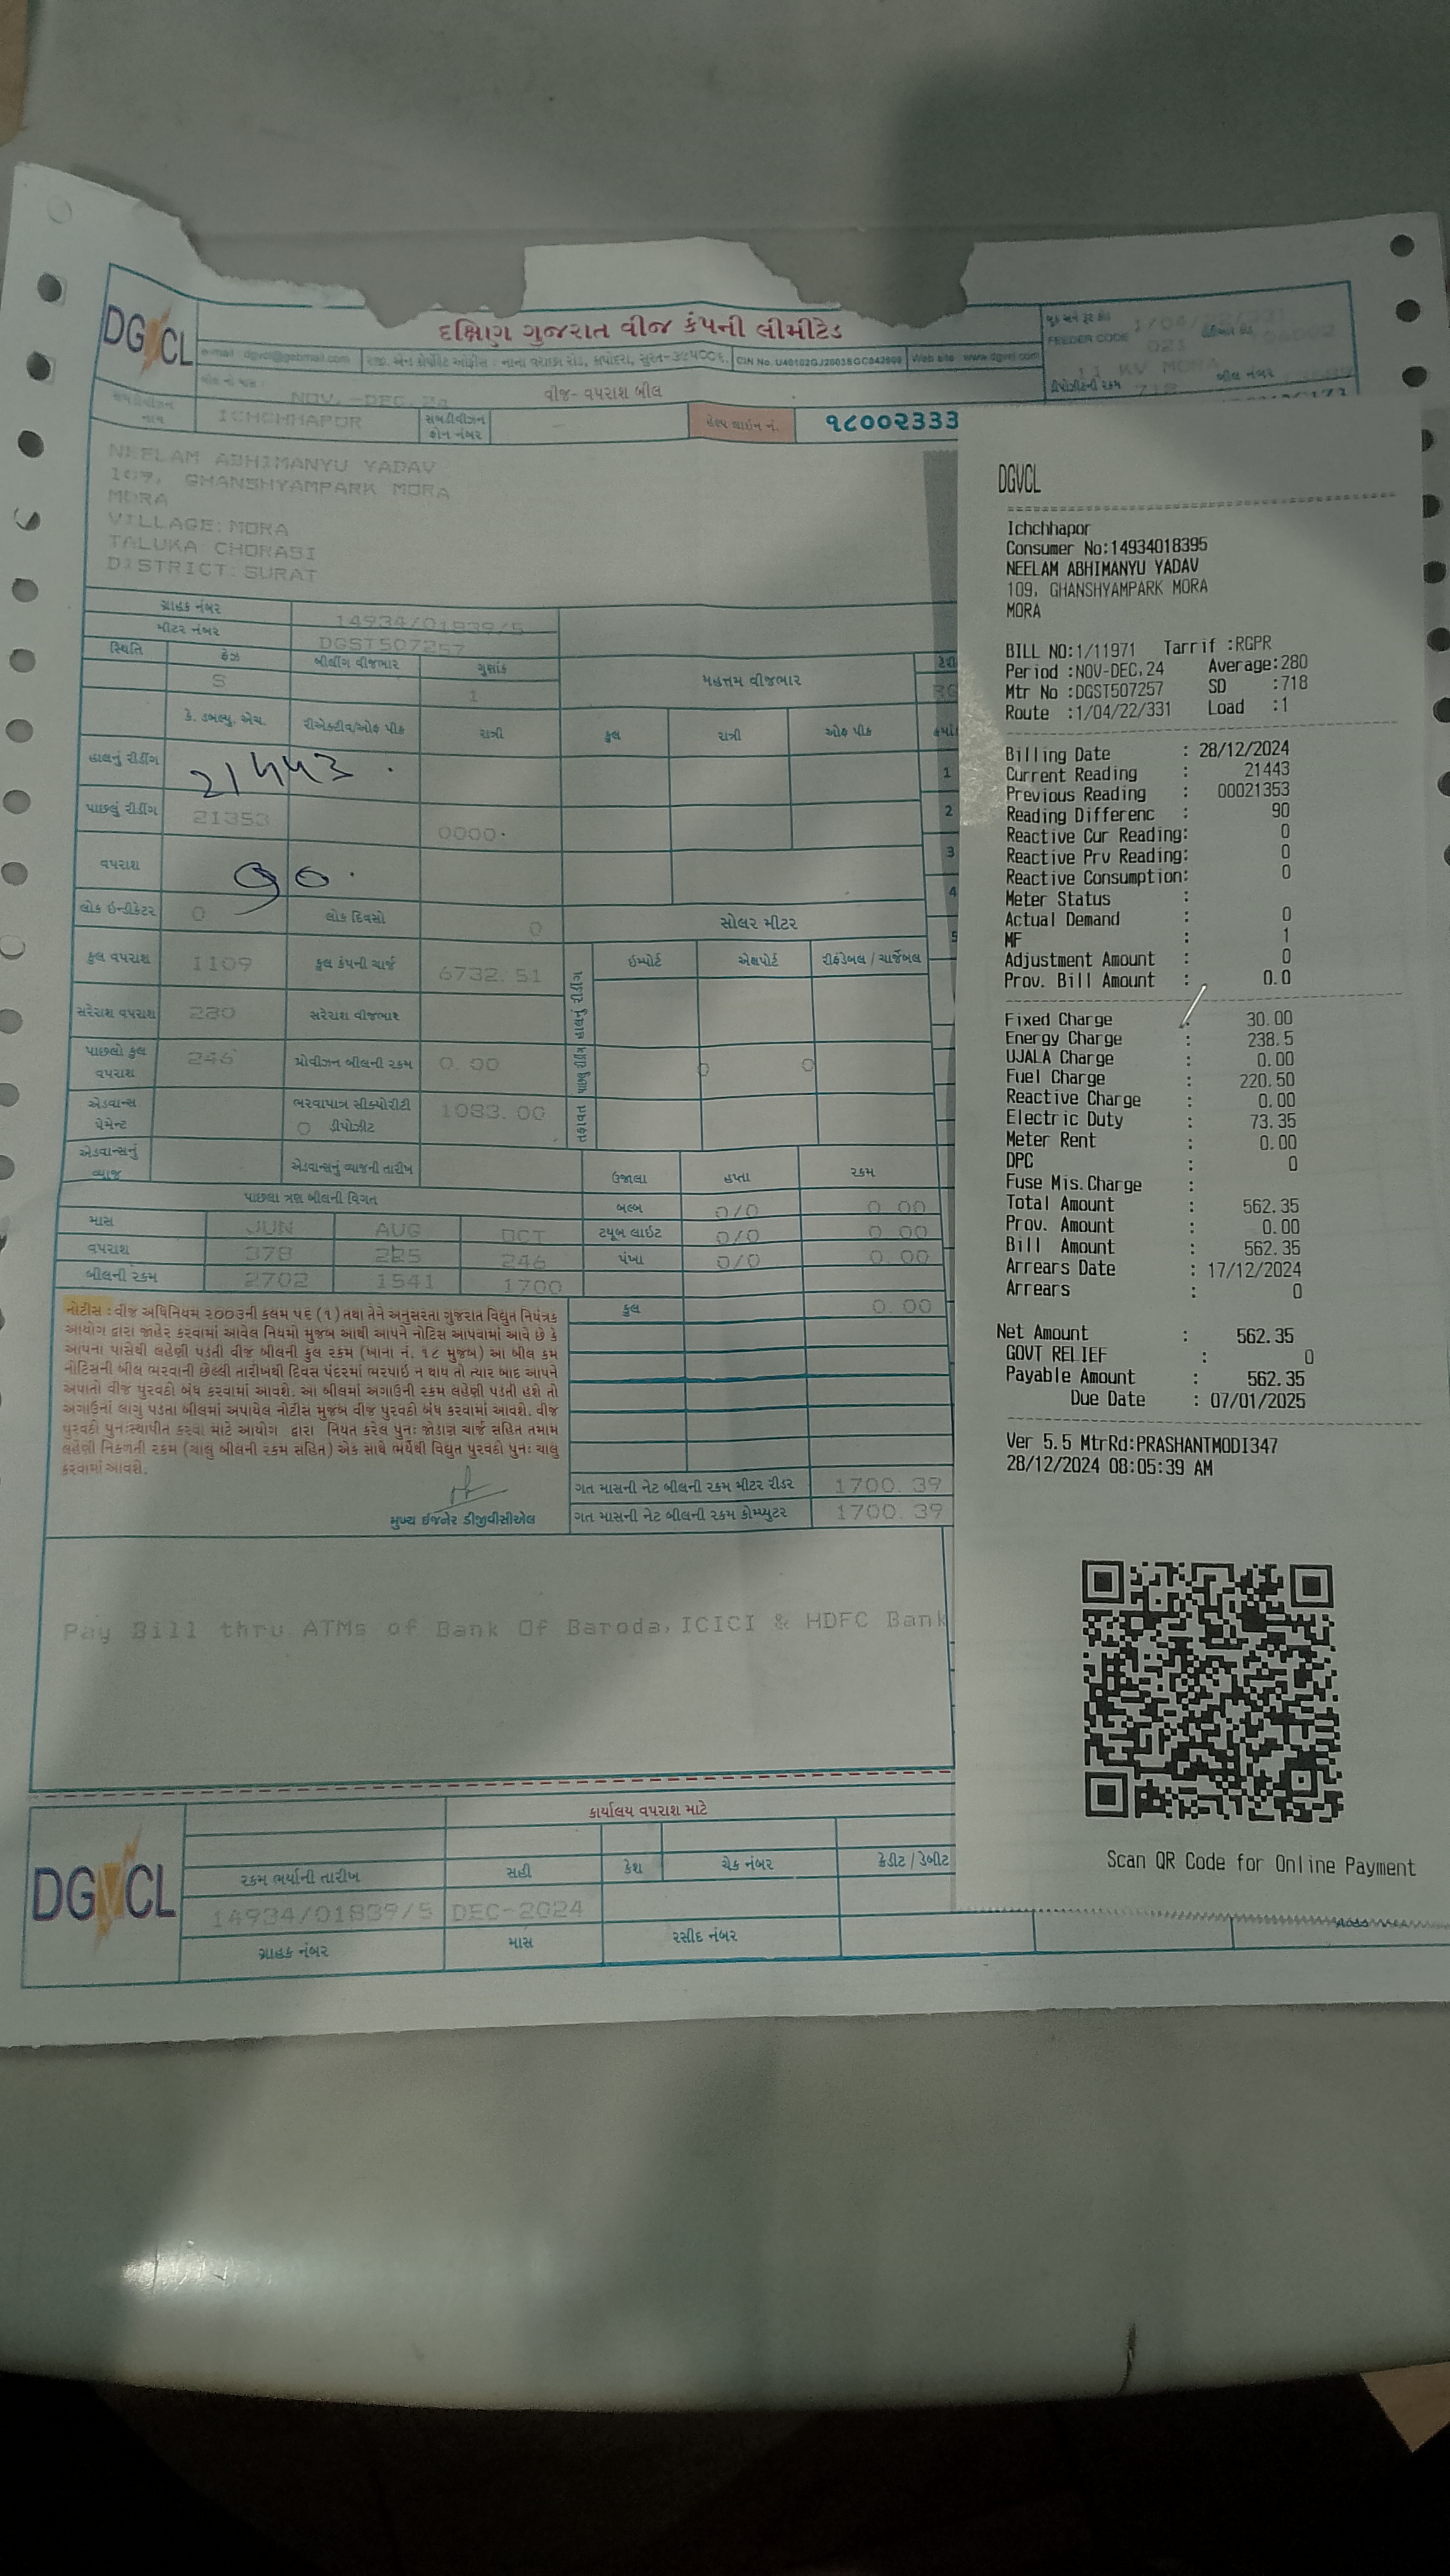 DGVCL
દક્ષિણ ગુજરાત વીજ કંપની લીમીટેડ
e-mail dgvcl@gebmail.com
રજી. એન્ડ કોર્પોરેટ ઓફીસ : નાના વરાછા રોડ, કાપોદ્રા, સુરત-૩૯૫૦૦૬.
CIN No. U40102GJ2003SGC042909
Web site www.dgvcl.com
FEEDER CODE 021
11 KV MORA
ડિપોઝીટની રકમ 718 બીલ નંબર
NOV.-DEC.24 વીજ- વપરાશ બીલ
સબડીવીઝન નામ ICHCHHAPOR સબડીવીઝન ફોન નંબર - હેલ્પ લાઇન નં. ૧૮૦૦૨૩૩૩
NEELAM ABHIMANYU YADAV
109, GHANSHYAMPARK MORA
MORA
VILLAGE: MORA
TALUKA: CHORASI
DISTRICT: SURAT
ગ્રાહક નંબર 14934/01839/5
મીટર નંબર DGST507257
સ્થિતિ ફેઝ બીલીંગ વીજભાર ગુણાંક મહત્તમ વીજભાર
S 1 RG
કે. ડબલ્યુ. એચ. રીએક્ટીવ/ઓફ પીક રાત્રી કુલ રાત્રી ઓફ પીક
હાલનું રીડીંગ 21443 . 1
પાછલું રીડીંગ 21353 0000. 2
વપરાશ 90. 3
4
લોક ઇન્ડીકેટર 0 લોક દિવસો 0 સોલર મીટર 5
કુલ વપરાશ 1109 કુલ કંપની ચાર્જ 6732.51 ઇમ્પોર્ટ એક્ષપોર્ટ રીફંડેબલ / ચાર્જેબલ
હાલનું રીડીંગ
સરેરાશ વપરાશ 280 સરેરાશ વીજભાર
પાછલો કુલ વપરાશ 246 પ્રોવીઝન બીલની રકમ 0.00 પાછલુ રીડીંગ 0 0
એડવાન્સ પેમેન્ટ ભરવાપાત્ર સીક્યોરીટી ડીપોઝીટ 0 1083.00 તફાવત
એડવાન્સનું વ્યાજ એડવાન્સનું વ્યાજની તારીખ ઉજાલા હપ્તા રકમ
પાછલા ત્રણ બીલની વિગત બલ્બ 0/0 0.00
માસ JUN AUG OCT ટયૂબ લાઇટ 0/0 0.00
વપરાશ 378 225 246 પંખા 0/0 0.00
બીલની રકમ 2702 1541 1700
કુલ 0.00
નોટીસ : વીજ અધિનિયમ ૨૦૦૩ની કલમ ૫૬ (૧) તથા તેને અનુસરતા ગુજરાત વિદ્યુત નિયંત્રક
આયોગ દ્વારા જાહેર કરવામાં આવેલ નિયમો મુજબ આથી આપને નોટિસ આપવામાં આવે છે કે
આપના પાસેથી લહેણી પડતી વીજ બીલની કુલ રકમ (ખાના નં. ૧૮ મુજબ) આ બીલ કમ
નોટિસની બીલ ભરવાની છેલ્લી તારીખથી દિવસ પંદરમાં ભરપાઇ ન થાય તો ત્યાર બાદ આપને
અપાતો વીજ પુરવઠો બંધ કરવામાં આવશે. આ બીલમાં અગાઉની રકમ લહેણી પડતી હશે તો
અગાઉનાં લાગુ પડતા બીલમાં અપાયેલ નોટીસ મુજબ વીજ પુરવઠો બંધ કરવામાં આવશે. વીજ
પુરવઠો પુનઃસ્થાપીત કરવા માટે આયોગ દ્વારા નિયત કરેલ પુનઃ જોડાણ ચાર્જ સહિત તમામ
લહેણી નિકળતી રકમ (ચાલુ બીલની રકમ સહિત) એક સાથે ભર્યેથી વિદ્યુત પુરવઠો પુનઃ ચાલુ
કરવામાં આવશે.
મુખ્ય ઇજનેર ડીજીવીસીએલ
ગત માસની નેટ બીલની રકમ મીટર રીડર 1700.39
ગત માસની નેટ બીલની રકમ કોમ્પ્યુટર 1700.39
Pay Bill thru ATMs of Bank Of Baroda, ICICI & HDFC Bank
DGVCL
કાર્યાલય વપરાશ માટે
રકમ ભર્યાની તારીખ સહી કેશ ચેક નંબર ક્રેડીટ / ડેબીટ
14934/01839/5 DEC-2024
ગ્રાહક નંબર માસ રસીદ નંબર
DGVCL
Ichchhapor
Consumer No:14934018395
NEELAM ABHIMANYU YADAV
109, GHANSHYAMPARK MORA
MORA
BILL NO:1/11971 Tarrif :RGPR
Period :NOV-DEC,24 Average:280
Mtr No :DGST507257 SD :718
Route :1/04/22/331 Load :1
Billing Date : 28/12/2024
Current Reading : 21443
Previous Reading : 00021353
Reading Differenc : 90
Reactive Cur Reading: 0
Reactive Prv Reading: 0
Reactive Consumption: 0
Meter Status :
Actual Demand : 0
MF : 1
Adjustment Amount : 0
Prov. Bill Amount : 0.0
Fixed Charge : 30.00
Energy Charge : 238.5
UJALA Charge : 0.00
Fuel Charge : 220.50
Reactive Charge : 0.00
Electric Duty : 73.35
Meter Rent : 0.00
DPC : 0
Fuse Mis.Charge :
Total Amount : 562.35
Prov. Amount : 0.00
Bill Amount : 562.35
Arrears Date : 17/12/2024
Arrears : 0
Net Amount : 562.35
GOVT RELIEF : 0
Payable Amount : 562.35
Due Date : 07/01/2025
Ver 5.5 MtrRd:PRASHANTMODI347
28/12/2024 08:05:39 AM
Scan QR Code for Online Payment